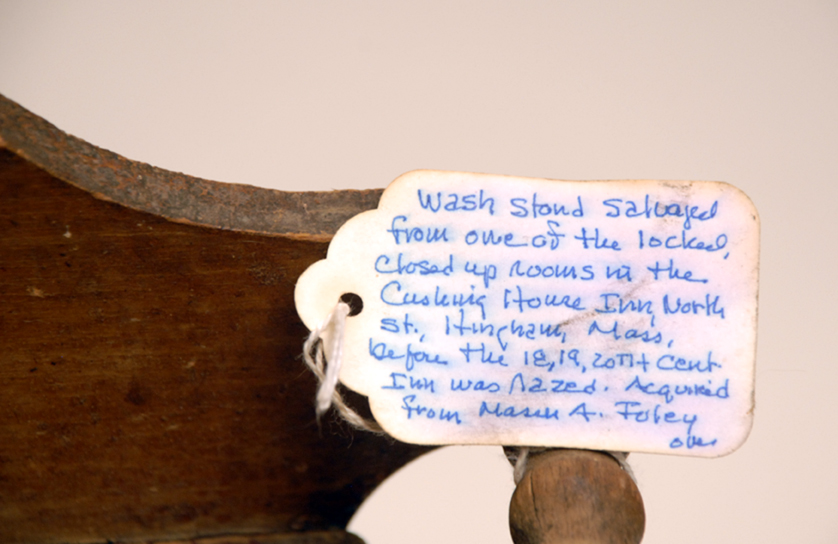 Wash Stand Salvaged
from one of the locked,
closed up rooms in the
Cushing House Inn, North
St., Hingham, Mass,
before the 18, 19, 20TH Cent
Inn was razed. Acquired
from Mason A. Foley
over